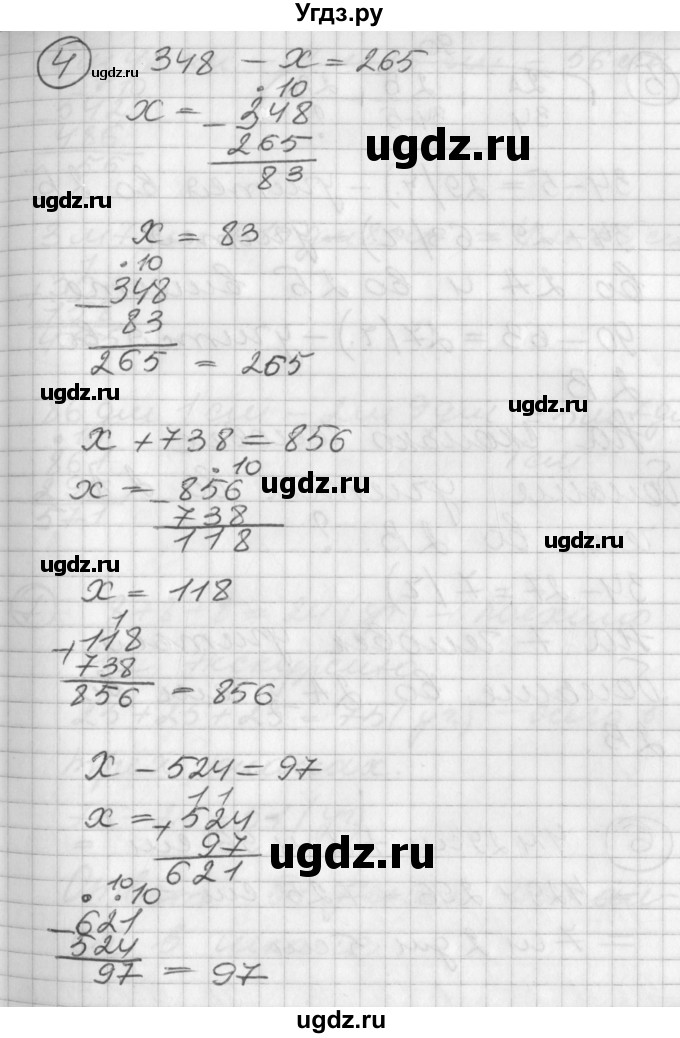 Угдз.ру
4 ugdz.ru 348 - x = 265
• 10
x = - 348
265
83
ugdz.ru
ugdz.ru
x = 83
• 10
- 348
83
265 = 265
ugdz.ru
x + 738 = 856
• 10
x = - 856
738
118
ugdz.ru
ugdz.ru
ugdz.ru
x = 118
1
+ 118
738
856 = 856
x - 524 = 97
1 1
x = + 524
97
621
ugdz.ru
• 10 • 10
- 621
524
97 = 97
ugdz.ru